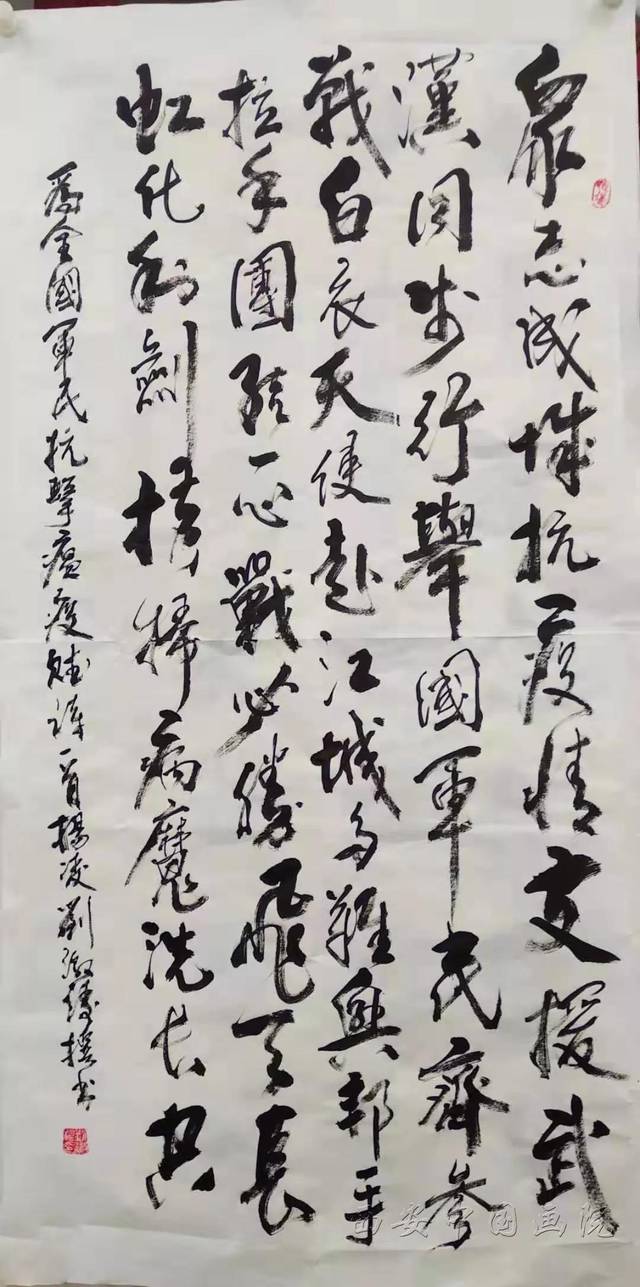 衆志成城抗疫情支援武
漢同步行舉國軍民齊參
戰白衣天使赴江城多難興邦手
拉手團結一心戰必勝飛天長
虹化利劍橫掃病魔洗長空
爲全國軍民抗擊瘟疫賦詩一首楊凌劉撰書
西安中国画院